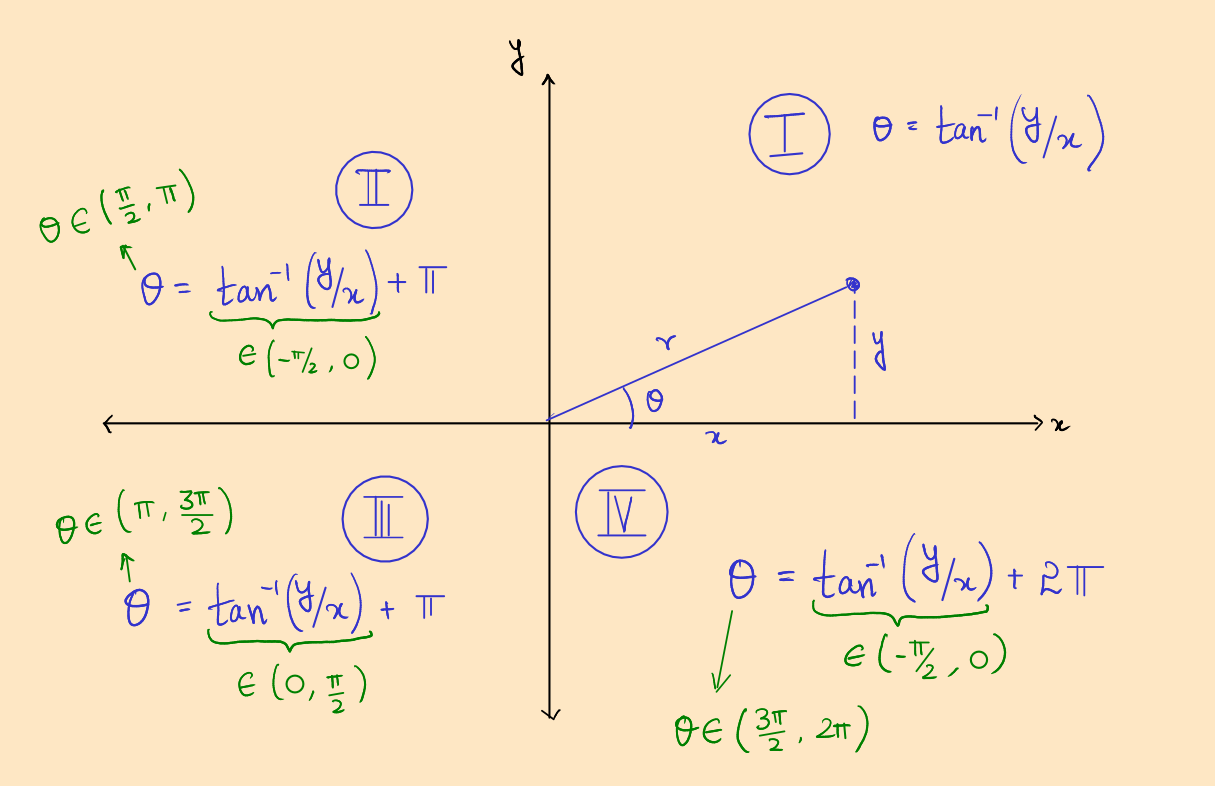 y
I θ = tan⁻¹(y/x)
II
θ ∈ (π/2, π)
θ = tan⁻¹(y/x) + π
∈ (-π/2, 0)
r
y
θ
x
x
III
IV
θ ∈ (π, 3π/2)
θ = tan⁻¹(y/x) + π
∈ (0, π/2)
θ = tan⁻¹(y/x) + 2π
∈ (-π/2, 0)
θ ∈ (3π/2, 2π)